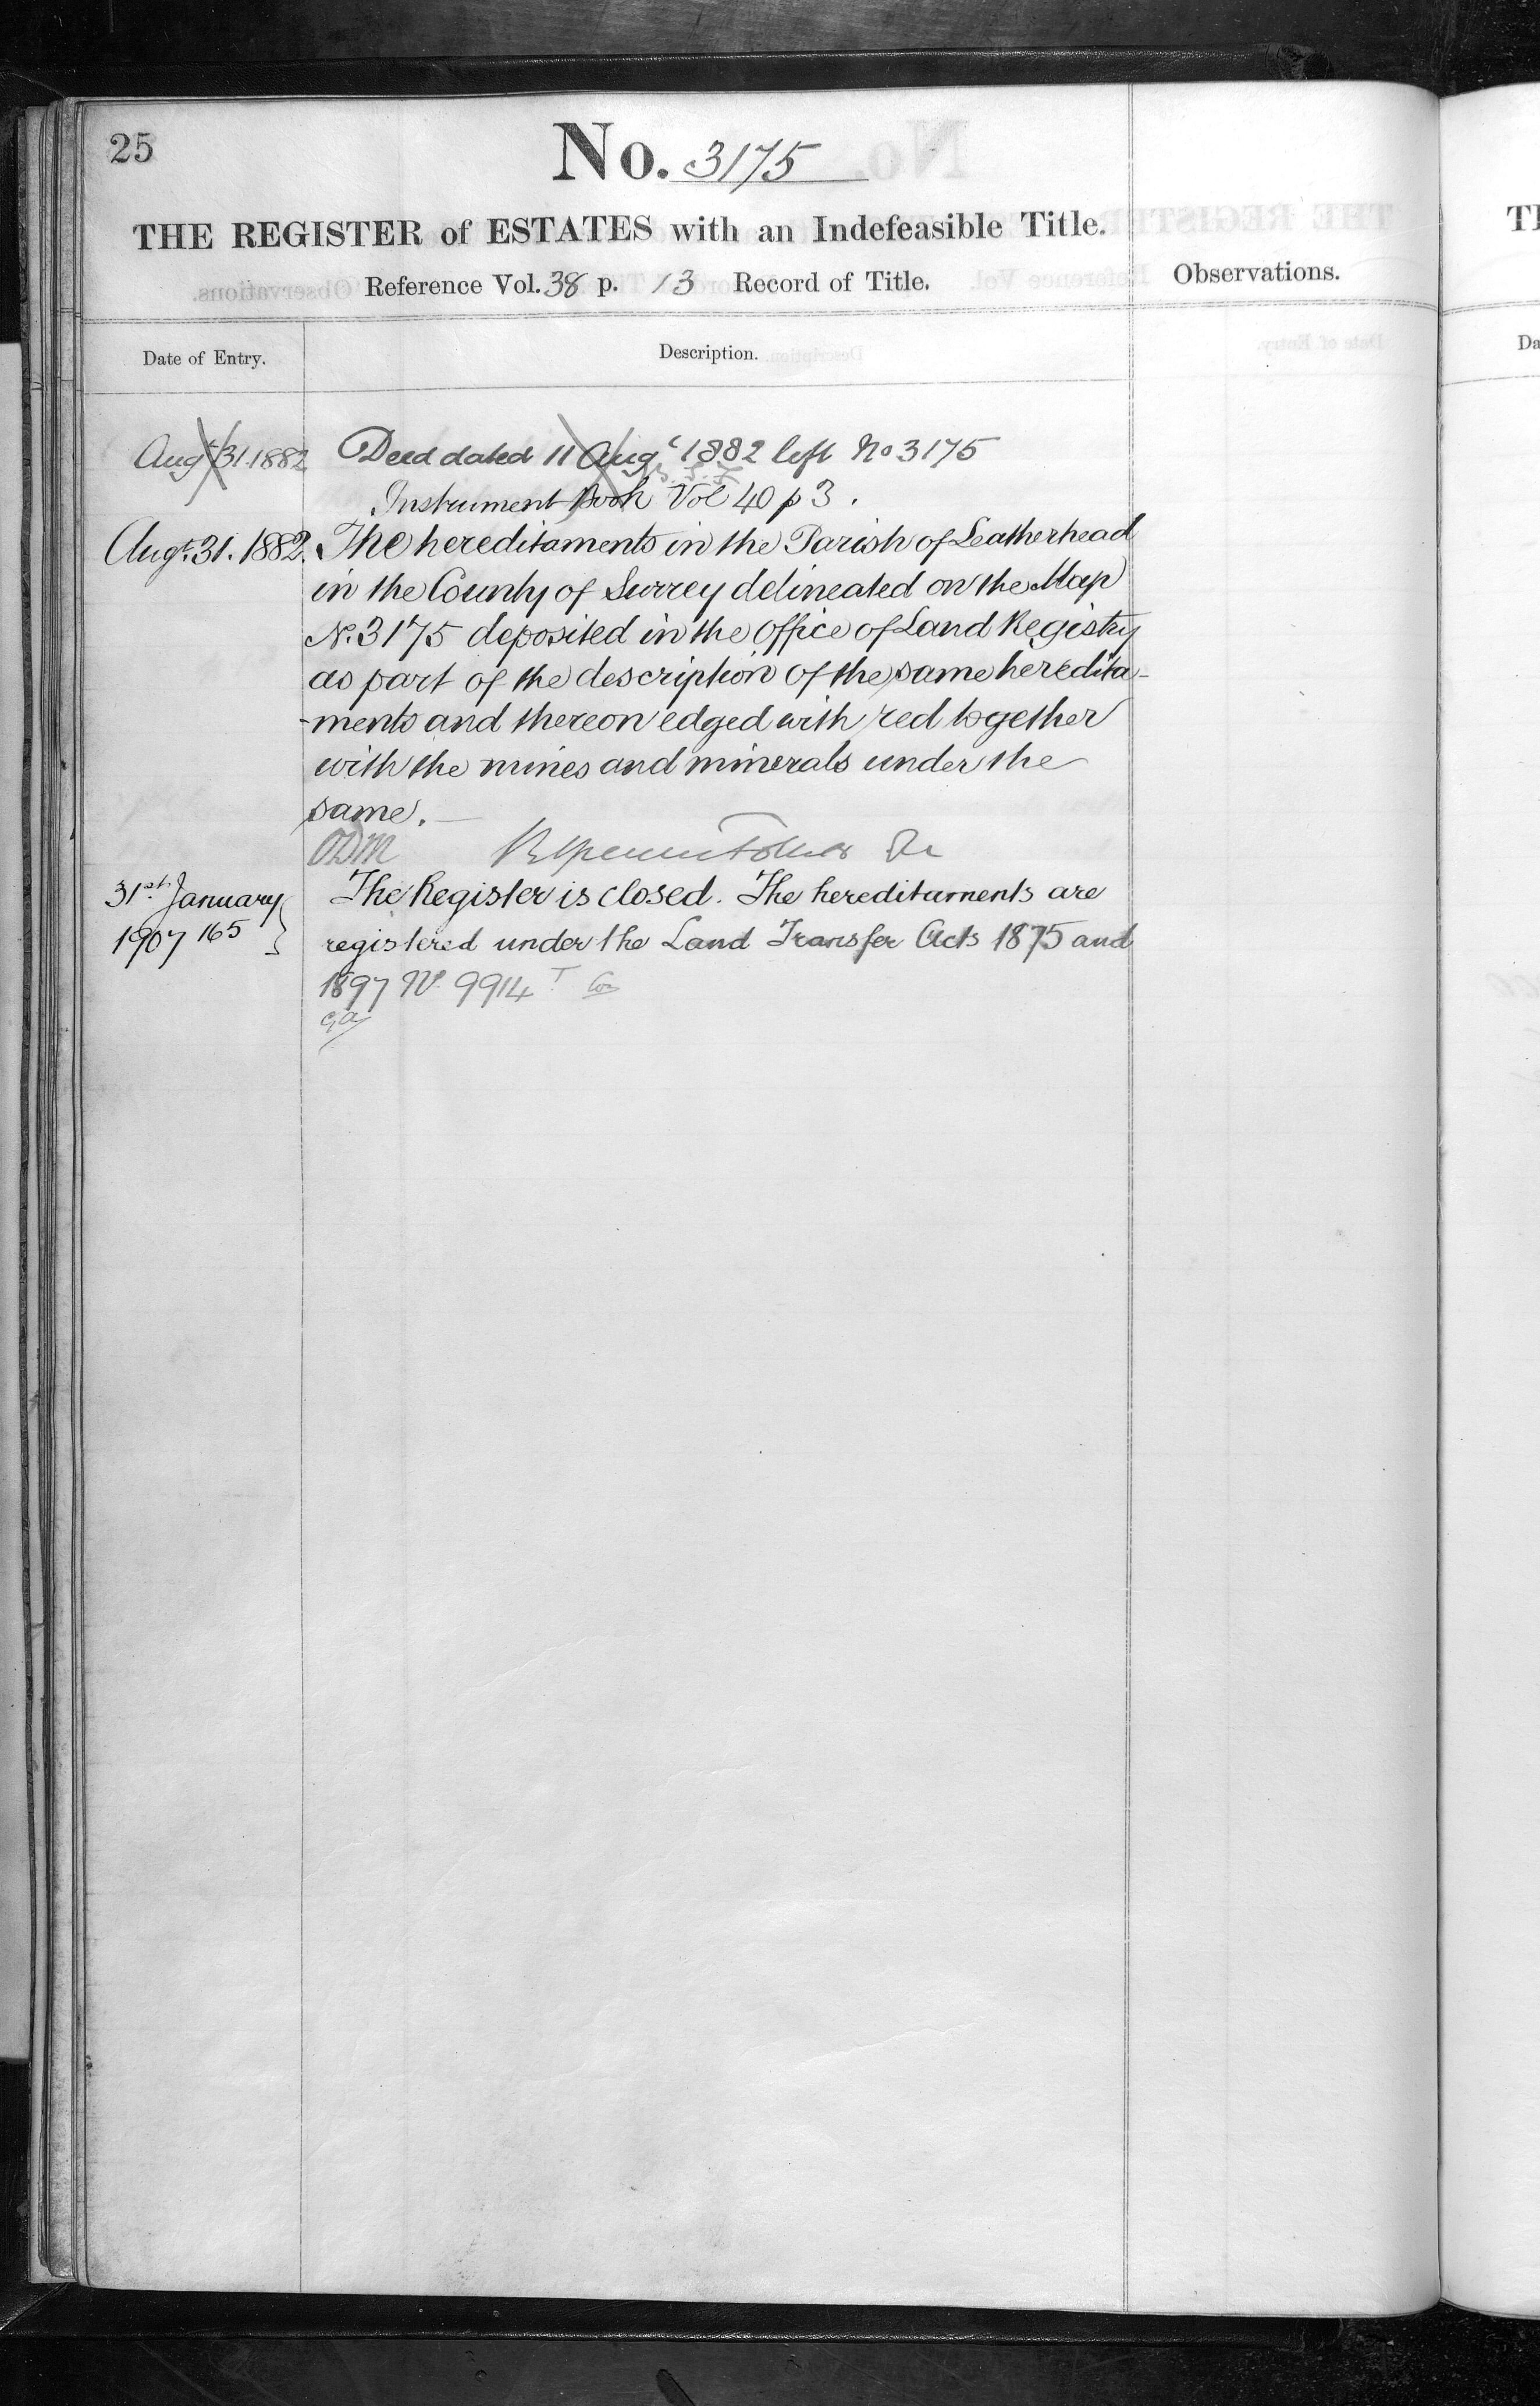 25
No. 3175
THE REGISTER of ESTATES with an Indefeasible Title.
Reference Vol. 38 p. 13 Record of Title.
Observations.
Date of Entry.
Description.
Augt 31 1882 Deed dated 11 Augt 1882 left No 3175
Instrument Book Vol 40 p 3.
Augt. 31. 1882. The hereditaments in the Parish of Leatherhead
in the County of Surrey delineated on the Map
No. 3175 deposited in the Office of Land Registry
as part of the description of the same heredita-
-ments and thereon edged with red together
with the mines and minerals under the
same.
ODM
31st. January The Register is closed. The hereditaments are
1907 165 registered under the Land Transfer Acts 1875 and
1897 No. 9914